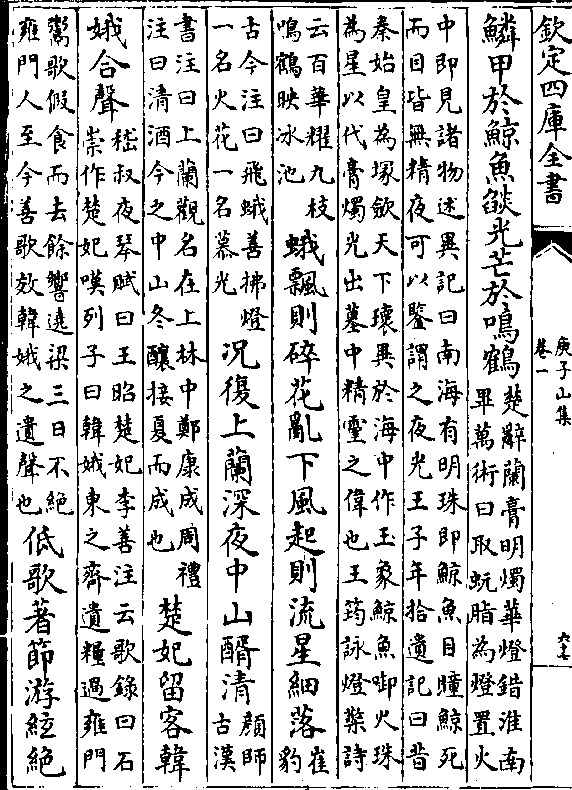 欽定四庫全書
庾子山集
卷一
鱗甲於鯨魚燄光芒於鳴鶴
楚辭蘭膏明燭華燈錯淮南
畢萬術曰取蚖脂為燈置火
中即見諸物述異記曰南海有明珠即鯨魚目瞳鯨死
而目皆無精夜可以鑒謂之夜光王子年拾遺記曰昔
秦始皇為塚斂天下瓌異於海中作玉象鯨魚啣火珠
為星以代膏燭光出墓中精靈之偉也王筠詠燈檠詩
云百華耀九枝
鳴鶴映冰池
蛾飄則碎花亂下風起則流星細落
崔
豹
古今注曰飛蛾善拂燈
一名火花一名慕光
況復上蘭深夜中山醑清
顔師
古漢
書注曰上蘭觀名在上林中鄭康成周禮
注曰清酒今之中山冬釀接夏而成也
楚妃留客韓
娥合聲
嵇叔夜琴賦曰王昭楚妃李善注云歌錄曰石
崇作楚妃嘆列子曰韓娥東之齊遺糧過雍門
鬻歌假食而去餘響遶梁三日不絕
雍門人至今善歌效韓娥之遺聲也
低歌著節游絃絕